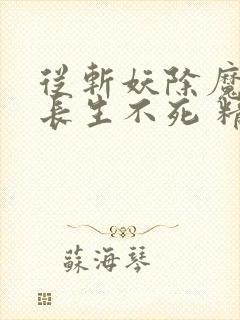 從斬妖除魔
長生不死 精
蘇海琴